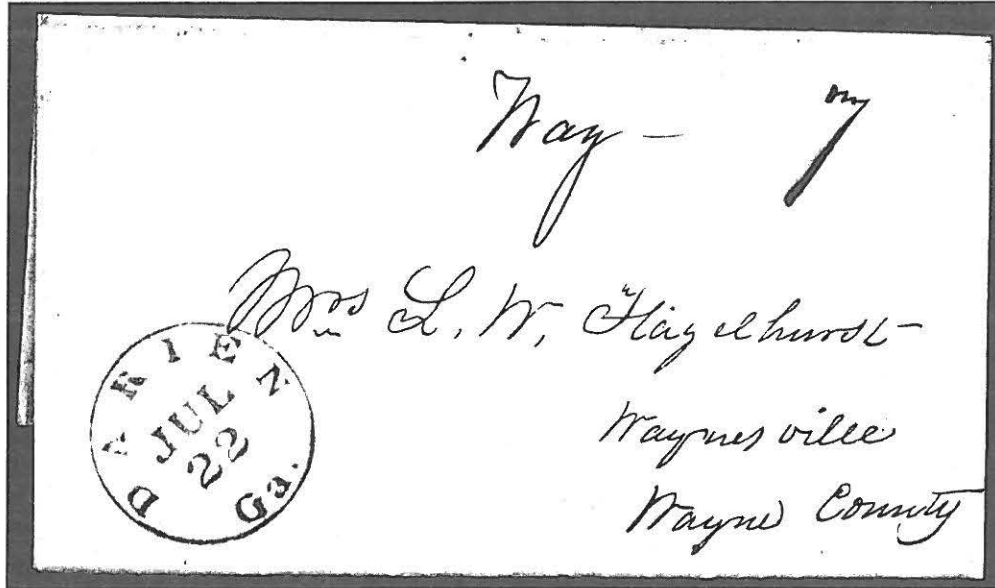 Way – 7
Mrs L. W. Hazelhurst
Waynesville
Wayne County
DARIEN Ga.
JUL
22